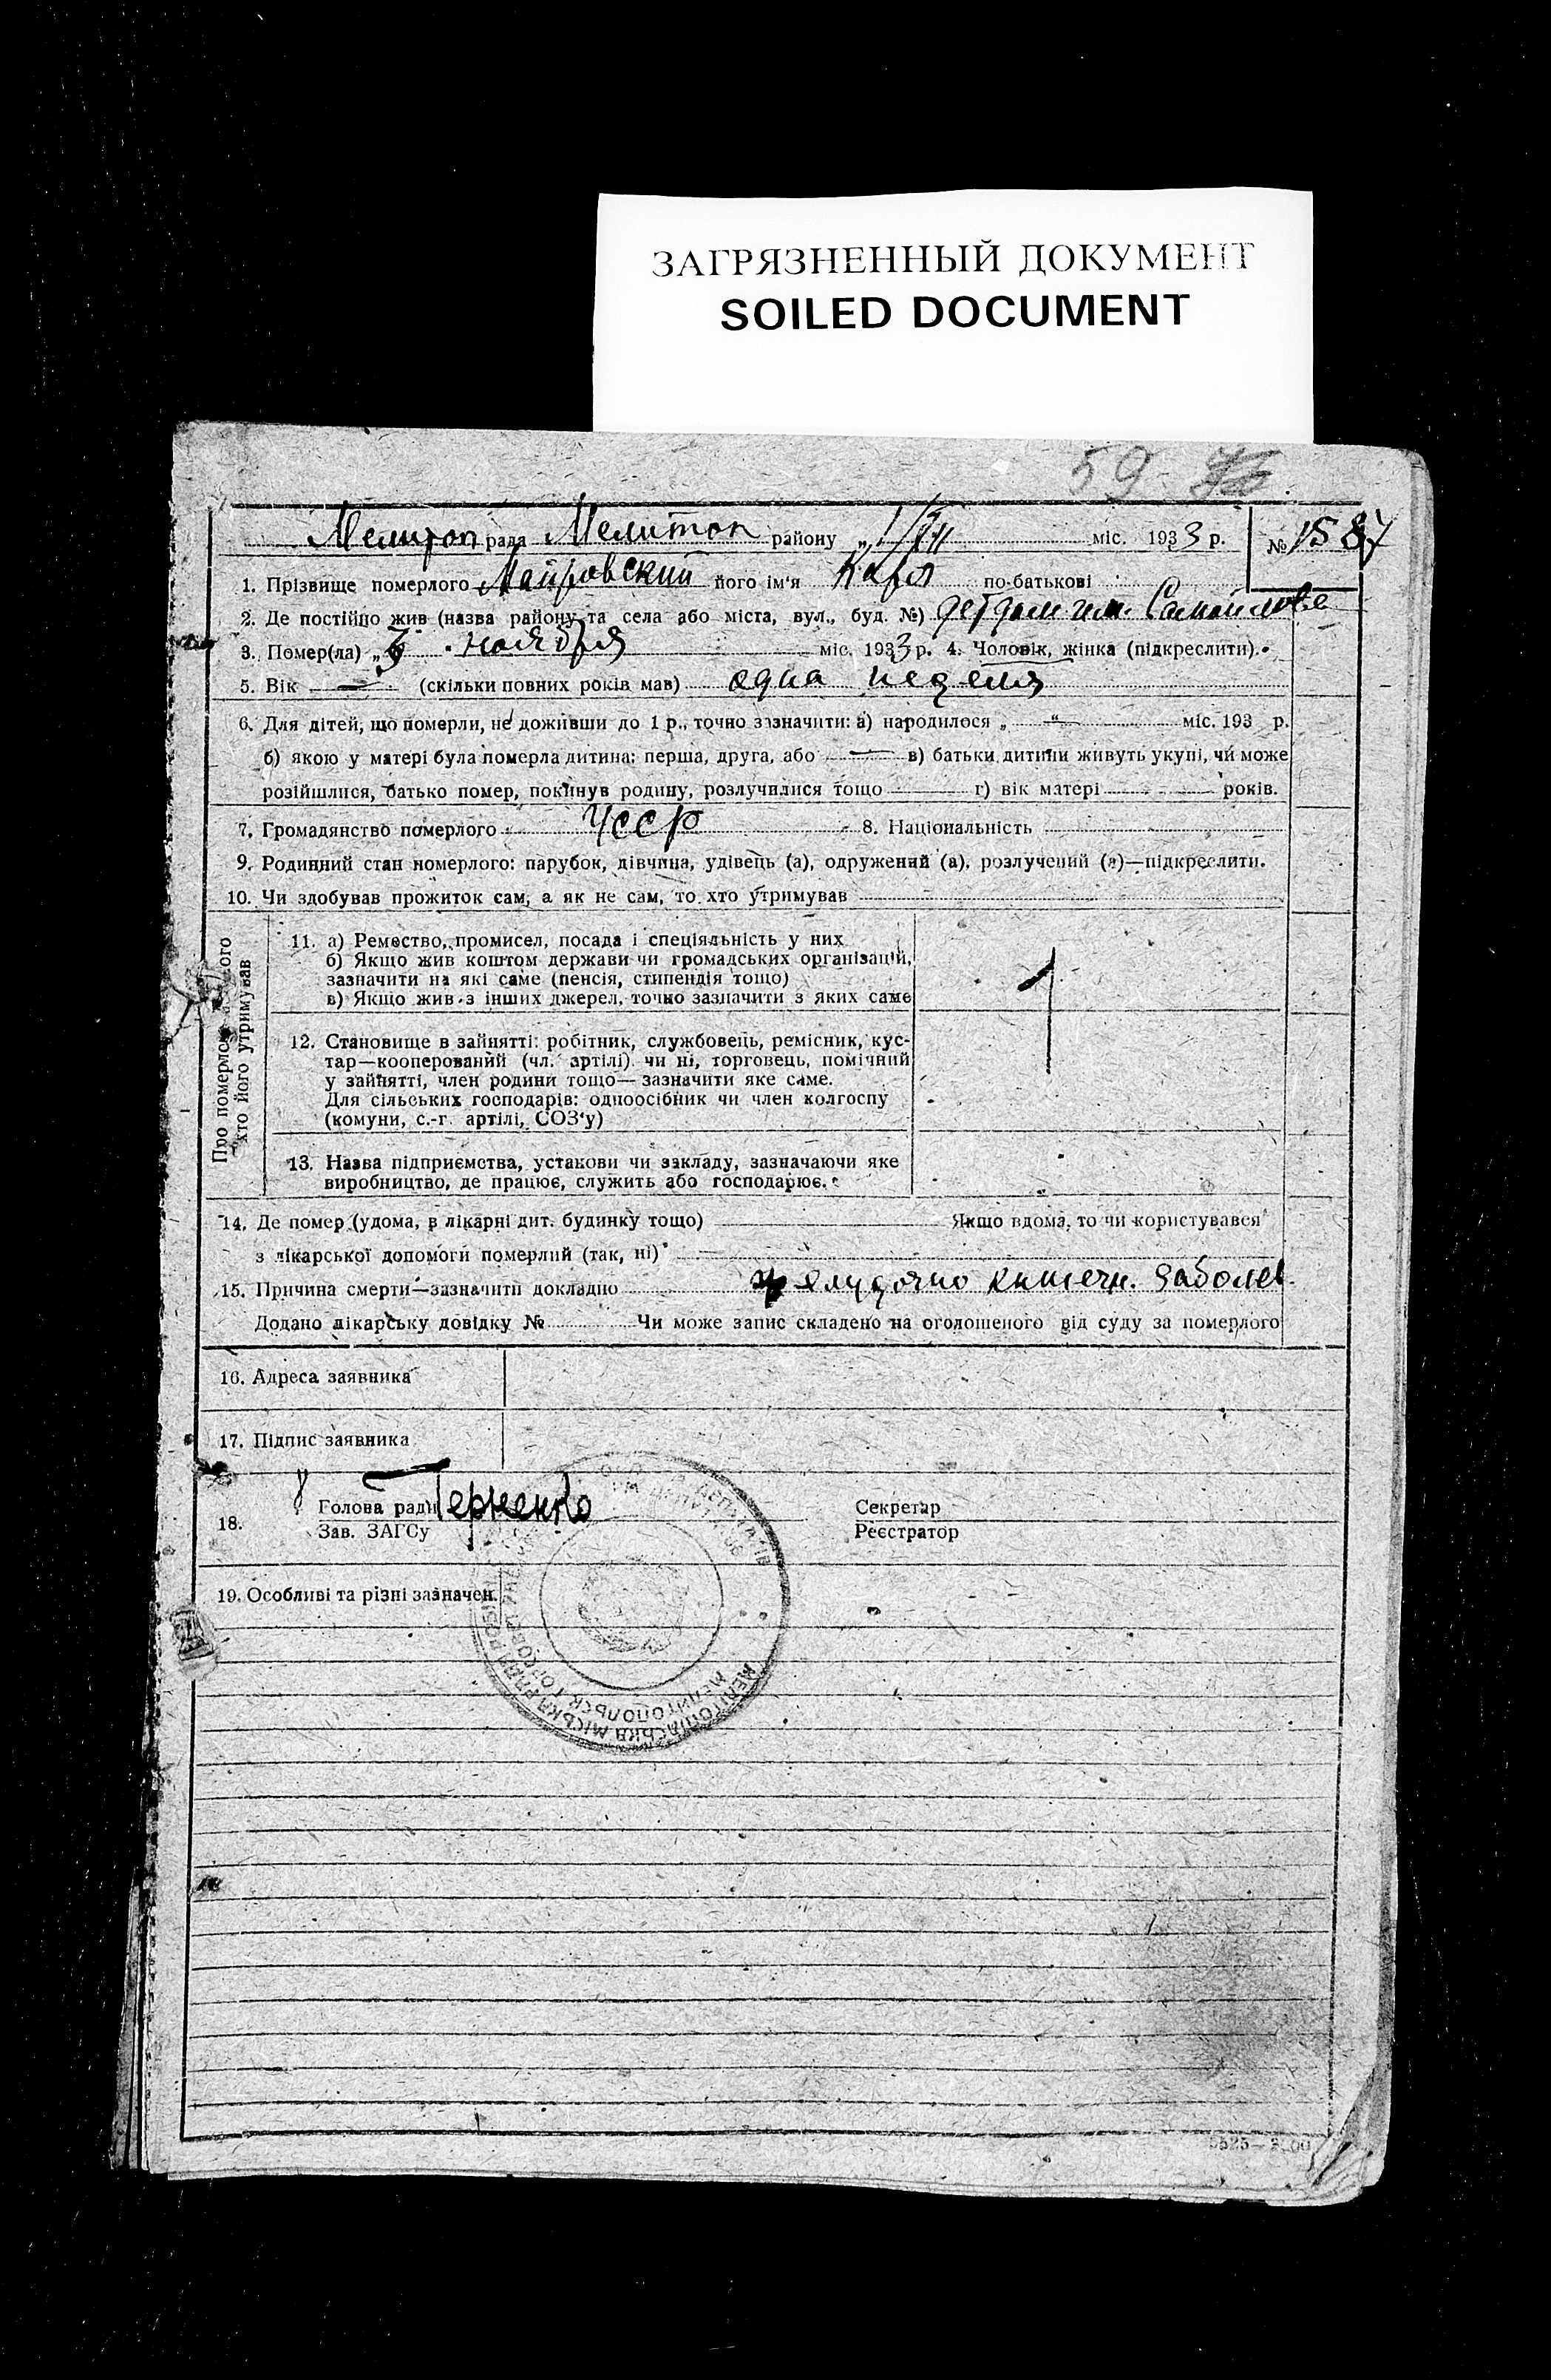 ЗАГРЯЗНЕННЫЙ ДОКУМЕНТ
SOILED DOCUMENT
59
Мелитоп рада Мелитоп району „ 1/XII міс. 1933 р. № 1587
1. Прізвище померлого його ім'я по-батькові
2. Де постійно жив (назва району та села або міста, вул., буд. №) детдом им. Самойлова
3. Помер(ла) „ ноября міс. 1933 р. 4. Чоловік, жінка (підкреслити).
5. Вік — (скільки повних років мав) одна неделя
6. Для дітей, що померли, не доживши до 1 р., точно зазначити: а) народилося „ — “ міс. 193 р.
б) якою у матері була померла дитина: перша, друга, або — в) батьки дитини живуть укупі, чи може
розійшлися, батько помер, покинув родину, розлучилися тощо г) вік матері років.
7. Громадянство померлого УССР 8. Національність
9. Родинний стан померлого: парубок, дівчина, удівець (а), одружений (а), розлучений (а)—підкреслити.
10. Чи здобував прожиток сам, а як не сам, то хто утримував
Про померлого
хто його утримував
11. а) Ремество, промисел, посада і спеціяльність у них
б) Якщо жив коштом держави чи громадських організацій,
зазначити на які саме (пенсія, стипендія тощо)
в) Якщо жив з інших джерел, точно зазначити з яких саме
12. Становище в зайнятті: робітник, службовець, ремісник, кус-
тар—кооперований (чл. артілі) чи ні, торговець, помічний
у зайнятті, член родини тощо— зазначити яке саме.
Для сільських господарів: одноосібник чи член колгоспу
(комуни, с.-г. артілі, СОЗ'у)
13. Назва підприємства, установи чи закладу, зазначаючи яке
виробництво, де працює, служить або господарює.
14. Де помер (удома, в лікарні дит. будинку тощо) Якщо вдома, то чи користувався
з лікарської допомоги померлий (так, ні)
15. Причина смерти—зазначити докладно желудочно кишечн. заболев.
Додано лікарську довідку № Чи може запис складено на оголошеного від суду за померлого
16. Адреса заявника
17. Підпис заявника
18. Голова ради Секретар
Зав. ЗАГСу Реєстратор
19. Особливі та різні зазначен.
МЕЛІТОПІЛЬСЬКА МІСЬКА РАДА ДЕПУТАТІВ
МЕЛИТОПОЛЬСК